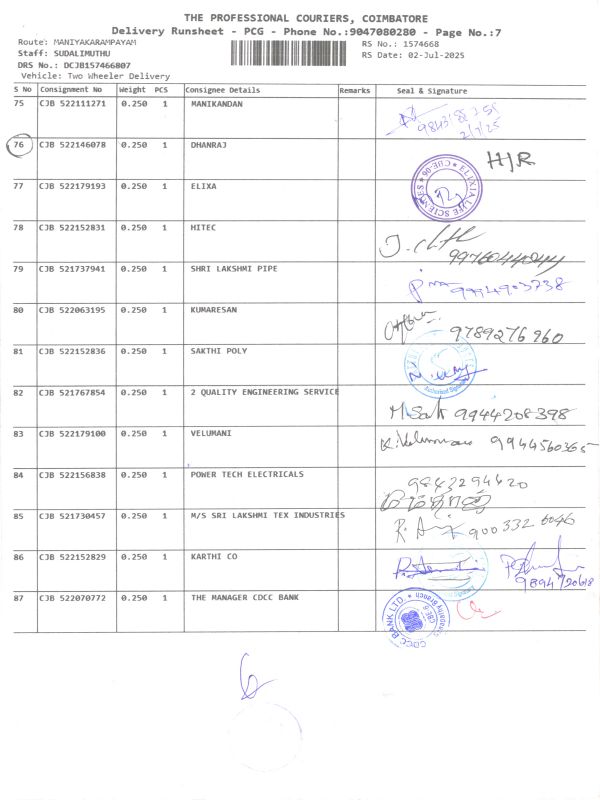 THE PROFESSIONAL COURIERS, COIMBATORE
Delivery Runsheet - PCG - Phone No.:9047080280 - Page No.:7
Route: MANIYAKARAMPAYAM
RS No.: 1574668
Staff: SUDALIMUTHU
RS Date: 02-Jul-2025
DRS No.: DCJB157466807
Vehicle: Two Wheeler Delivery
S No Consignment No Weight PCS Consignee Details Remarks Seal & Signature
75 CJB 522111271 0.250 1 MANIKANDAN
2/7/25
76 CJB 522146078 0.250 1 DHANRAJ
H/R
77 CJB 522179193 0.250 1 ELIXA
ELIXIA LIFE SCIENCES * CBE-06 *
78 CJB 522152831 0.250 1 HITEC
79 CJB 521737941 0.250 1 SHRI LAKSHMI PIPE
9994903738
80 CJB 522063195 0.250 1 KUMARESAN
9789276960
81 CJB 522152836 0.250 1 SAKTHI POLY
Authorised Signatory
82 CJB 521767854 0.250 1 2 QUALITY ENGINEERING SERVICE
9944208398
83 CJB 522179100 0.250 1 VELUMANI
K. Velumani 9944560365
84 CJB 522156838 0.250 1 POWER TECH ELECTRICALS
9843294420
85 CJB 521730457 0.250 1 M/S SRI LAKSHMI TEX INDUSTRIES
900332 6046
86 CJB 522152829 0.250 1 KARTHI CO
87 CJB 522070772 0.250 1 THE MANAGER CDCC BANK
CDCC BANK LTD. CBE-6